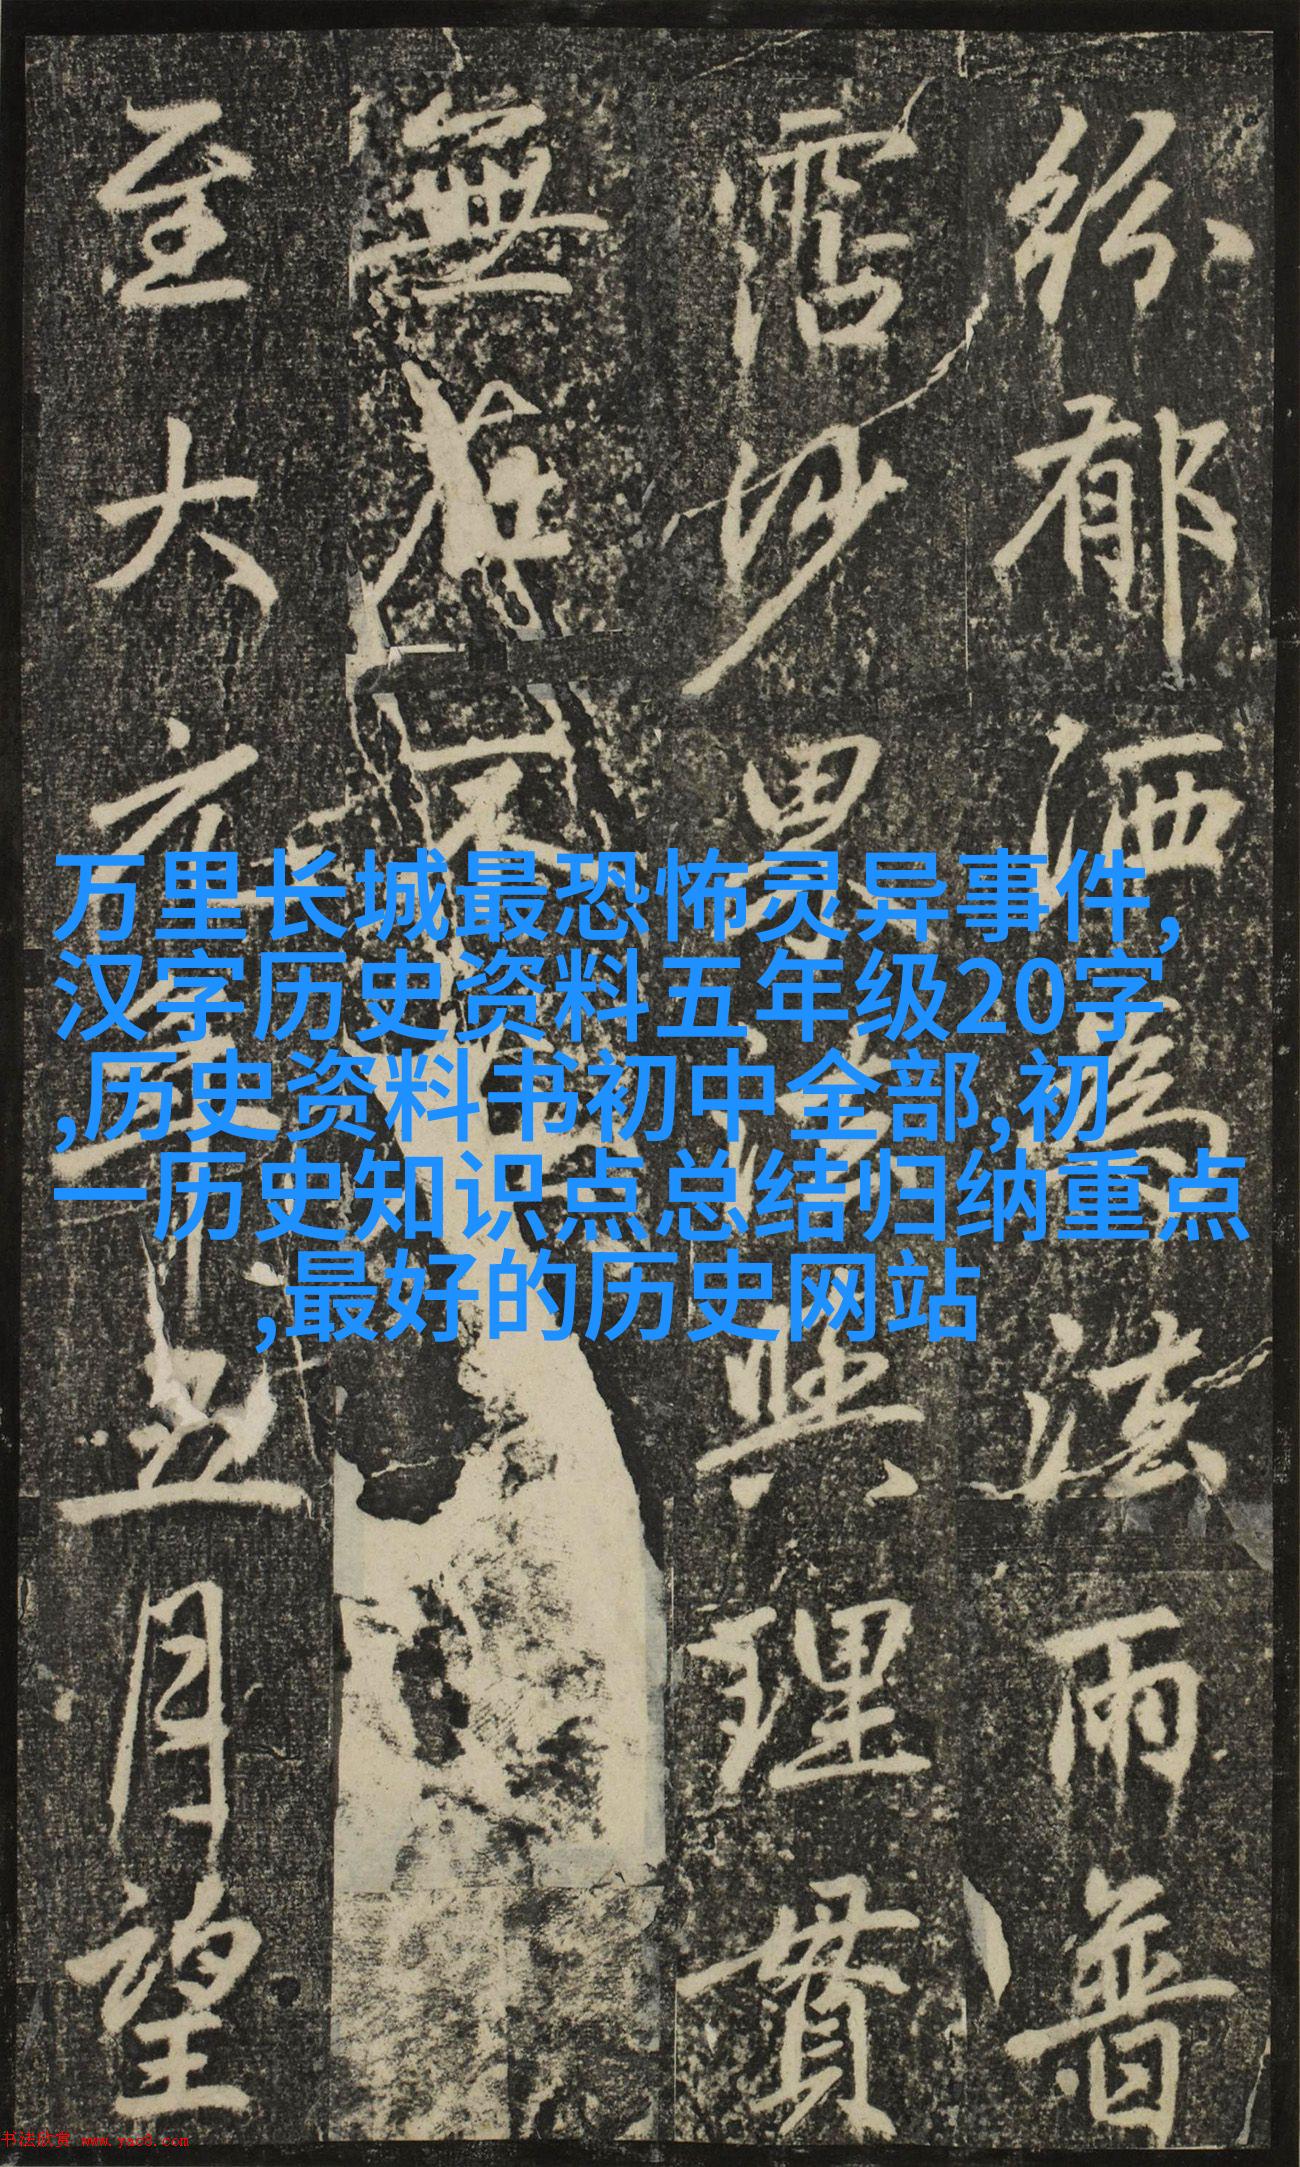 紛郁洒為法雨普
霑妙果法興理貫
無右不
至大六年五月望
万里长城最恐怖灵异事件,
汉字历史资料五年级20字
,历史资料书初中全部,初
一历史知识点总结归纳重点
,最好的历史网站
书法欣赏 www.yac8.com